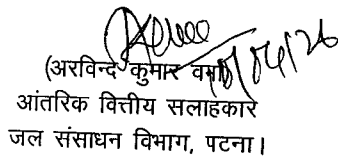 (अरविन्द कुमार वर्मा)
आंतरिक वित्तीय सलाहकार
जल संसाधन विभाग, पटना।